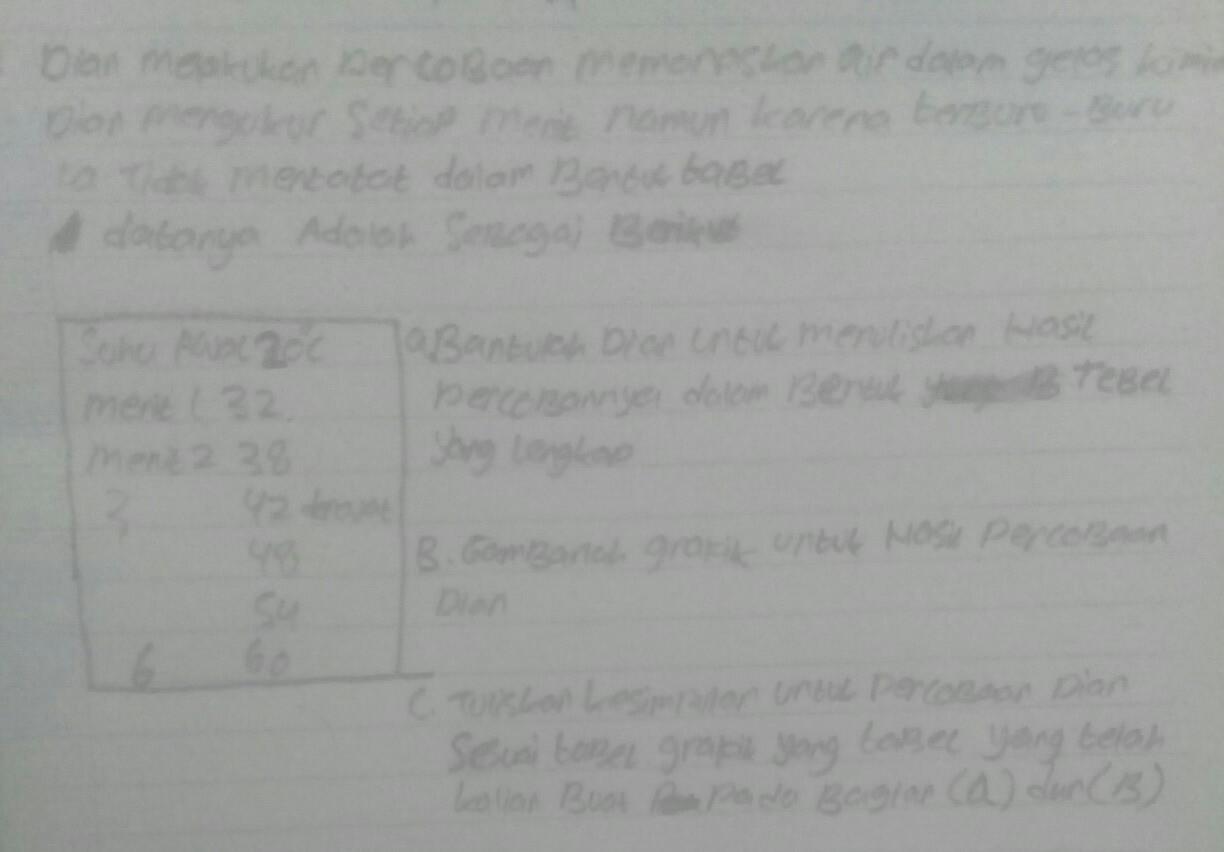 Dian melakukan percobaan memanaskan air dalam gelas kimia
Dian mengukur setiap menit namun karena terburu-buru
ia Tidak mencatat dalam Bentuk tabel
datanya Adalah Sebagai Berikut
Suhu Awal 20°C
menit 1 32.
menit 2 38
3 42 derajat
48
54
6 60
a. Bantulah Dian untuk menuliskan Hasil
percobannya dalam Bentuk TaBel
yang lengkap
B. Gambarlah grafik untuk Hasil Percobaan
Dian
C. Tuliskan kesimpulan untuk Percobaan Dian
Sesuai tabel grafik yang tabel yang telah
kalian Buat Pada Bagian (A) dan (B)